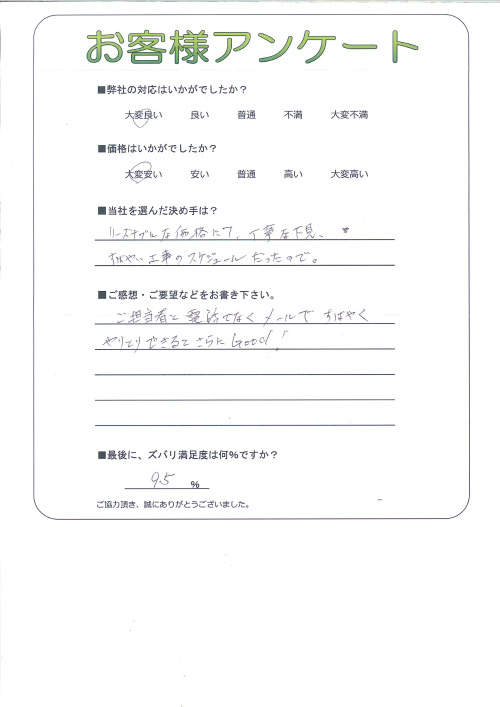 お客様アンケート
■弊社の対応はいかがでしたか？
大変良い 良い 普通 不満 大変不満
■価格はいかがでしたか？
大変安い 安い 普通 高い 大変高い
■当社を選んだ決め手は？
リーズナブルな価格にて、丁寧な下見、
すばやい工事のスケジュールだったので。
■ご感想・ご要望などをお書き下さい。
ご担当者と電話でなくメールですばやく
やりとりできるとさらにGood!
■最後に、ズバリ満足度は何％ですか？
95 %
ご協力頂き、誠にありがとうございました。